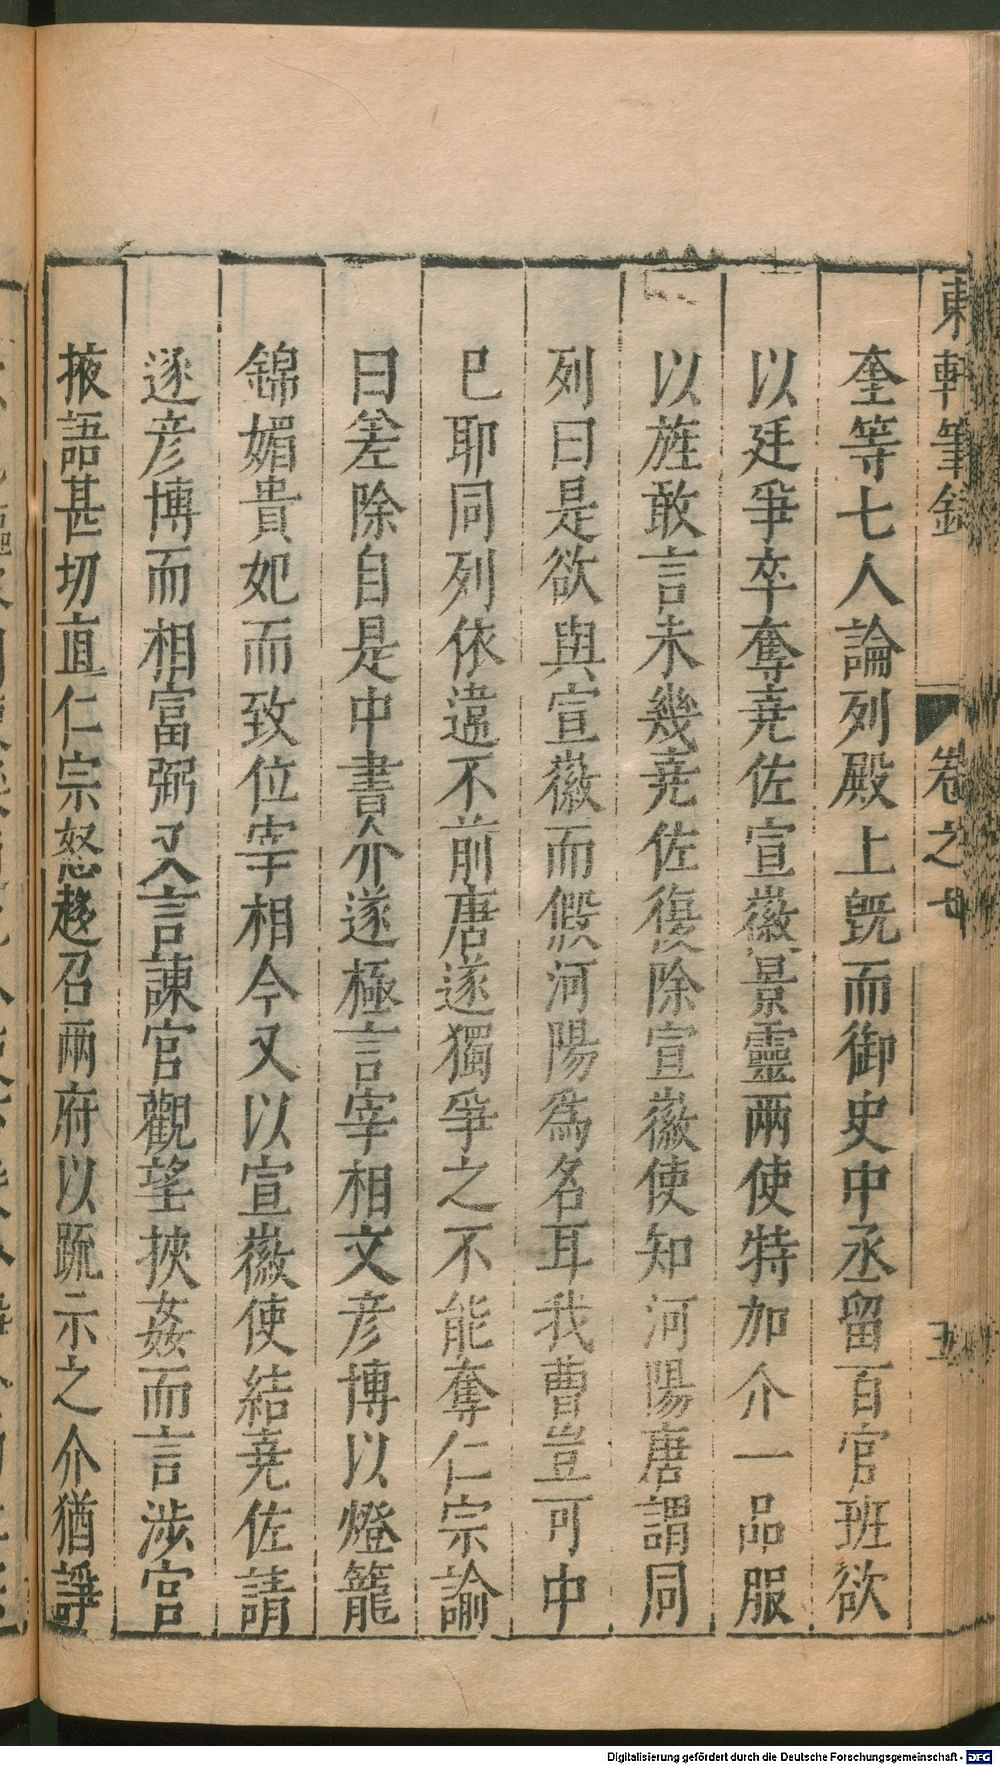 東軒筆錄 卷之七 五
奎等七人論列殿上旣而御史中丞留百官班欲
以廷爭卒奪堯佐宣徽景靈兩使特加介一品服
以旌敢言未幾堯佐復除宣徽使知河陽唐謂同
列曰是欲與宣徽而假河陽爲名耳我曹豈可中
已耶同列依違不前唐遂獨爭之不能奪仁宗諭
曰差除自是中書介遂極言宰相文彥博以燈籠
錦媚貴妃而致位宰相今又以宣徽使結堯佐請
逐彥博而相富弼又言諫官觀望挾姦而言涉宮
掖語甚切直仁宗怒趍召兩府以䟽示之介猶諍
Digitalisierung gefördert durch die Deutsche Forschungsgemeinschaft - DFG